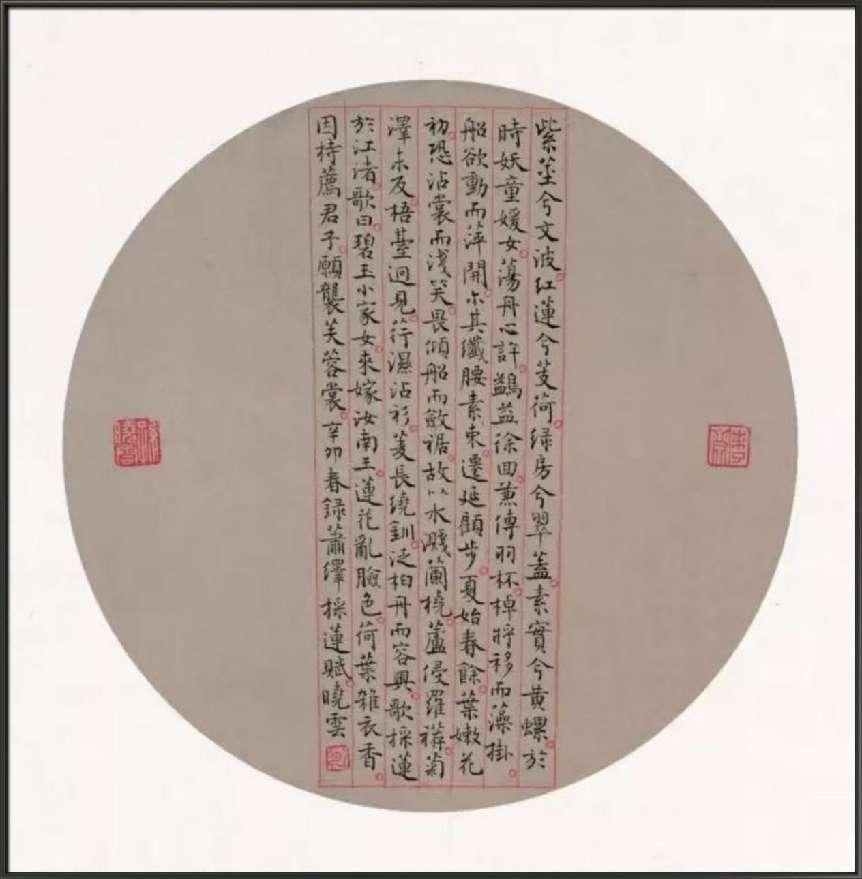 紫莖兮文波紅蓮兮芰荷緑房兮翠蓋素實兮黄螺於
時妖童媛女蕩舟心許鷁益徐回兼傳羽杯棹將移而藻掛
船欲動而萍開尒其纖腰素束遷延顧步夏始春餘葉嫩花
初恐沾裳而淺笑畏傾船而斂裾故以水濺蘭橈蘆侵羅菊
澤未反梧臺迥見荇濕沾衫菱長繞釧泛柏舟而容與歌採蓮
於江渚歌曰碧玉小家女來嫁汝南王蓮花亂臉色荷葉雜衣香
因持薦君子願襲芙蓉裳辛卯春録蕭繹採蓮賦曉雲